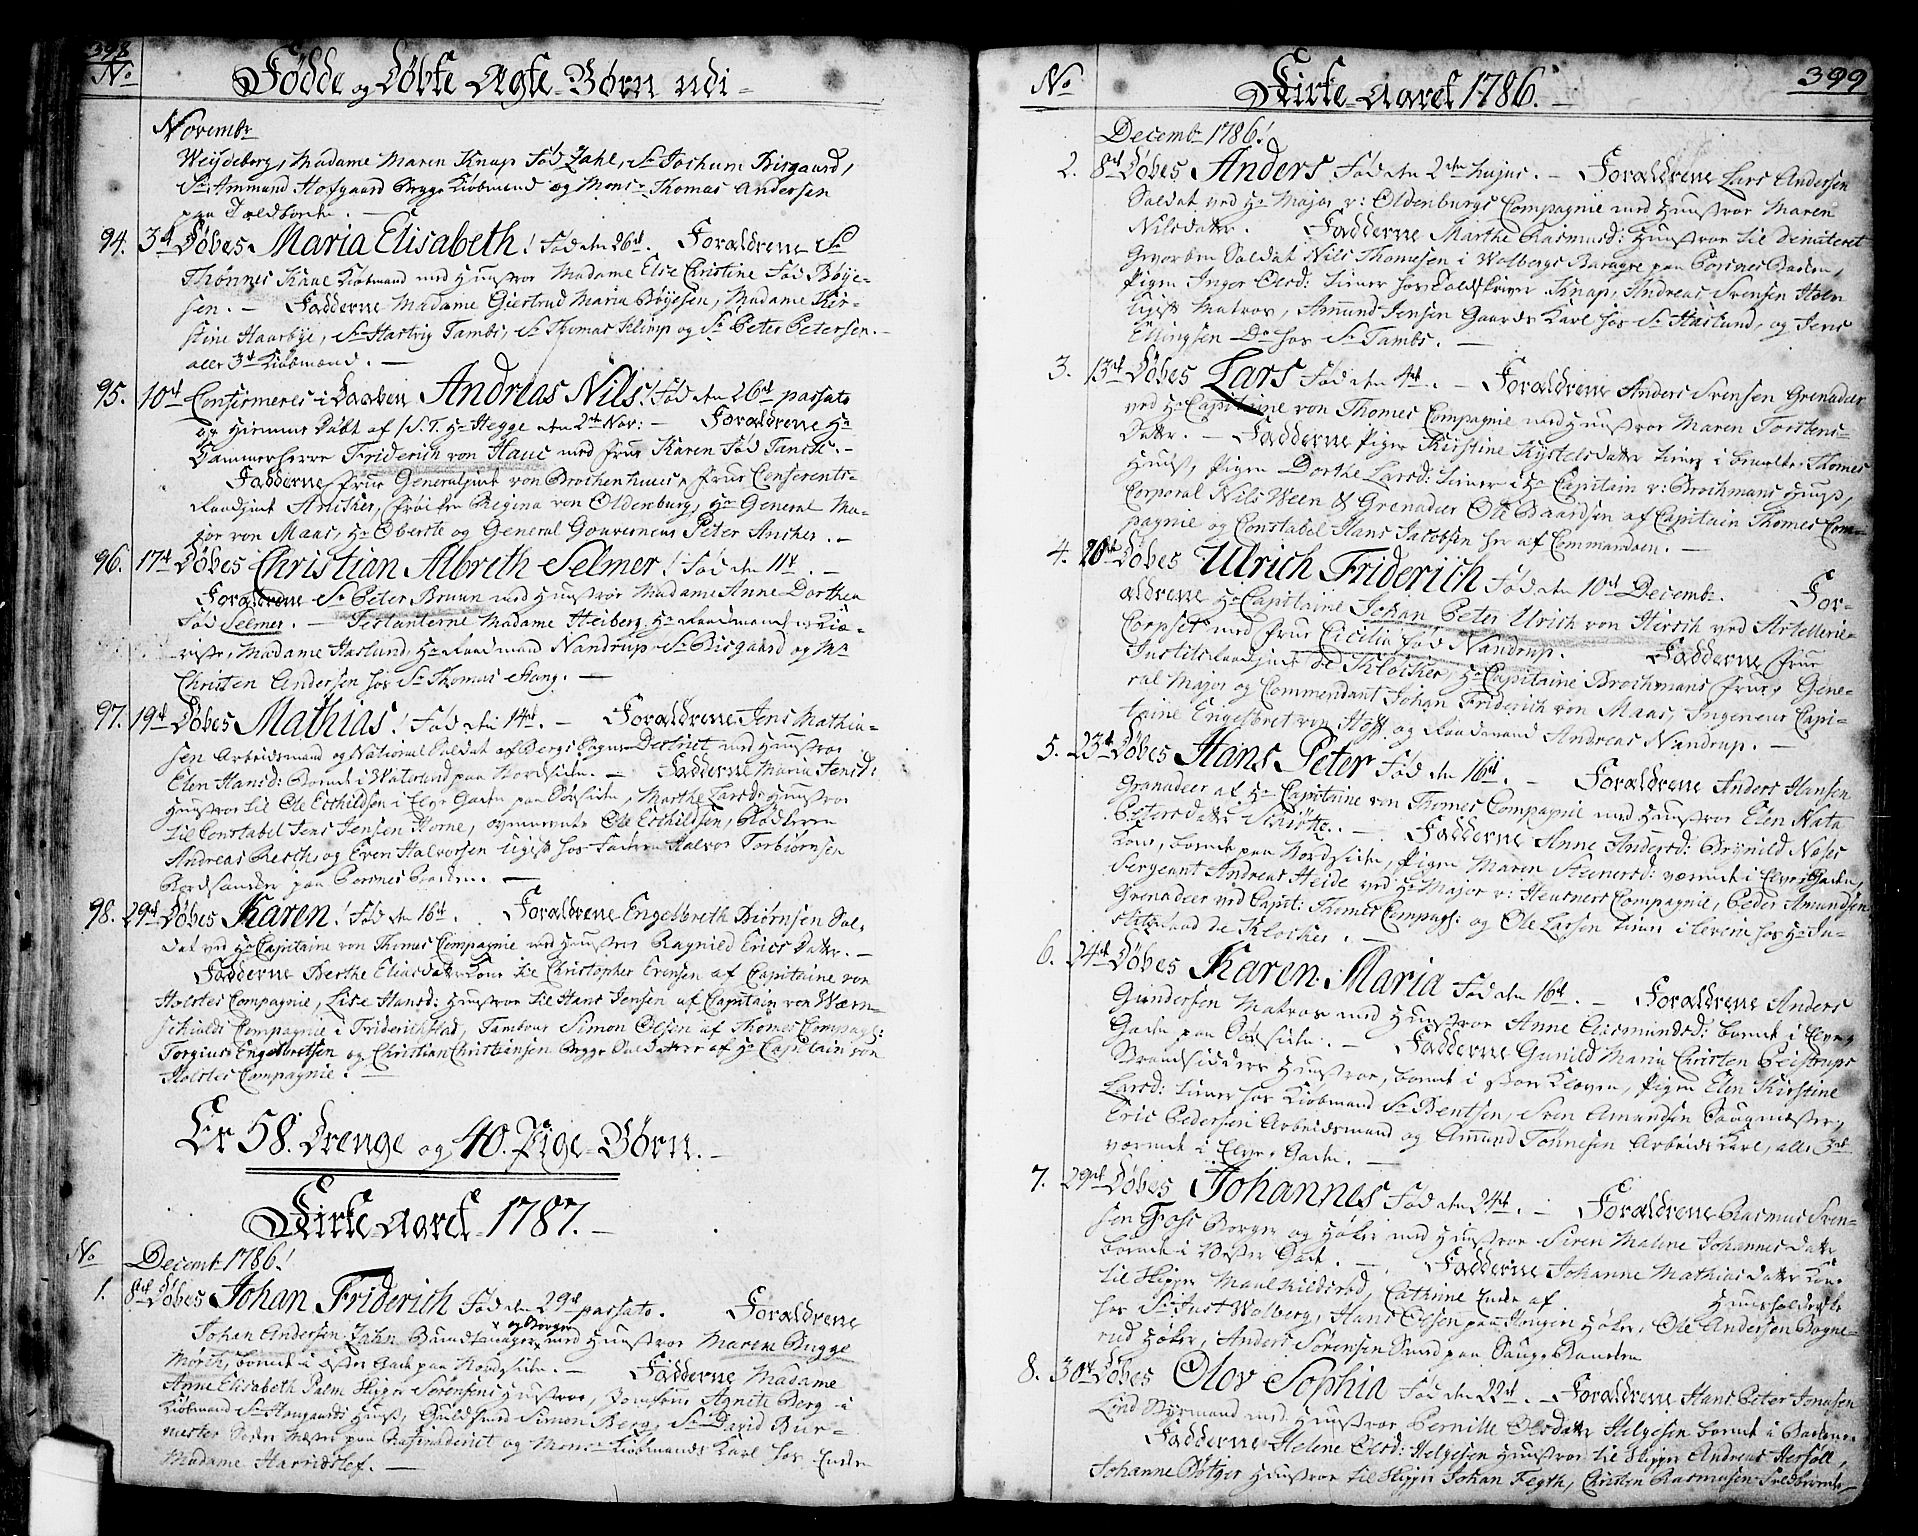 398
No Fødde og Døbte Ægte Børn udi -
Novembr
Weydeborg, Madame Maren Knap fød Zahl, Sr Jochum Bisgaard,
Sr Ammund Hofgaard Begge Kiøbmænd og Monsr Thomas Andersen
paa Toldboden. -
94. 3d Døbes Maria Elisabeth! Fød den 26d. Forældrene Sr
Thønnes Kaae Kiøbmand med Hustroe Madame Else Christine Fød Bøye-
sen. - Fadderne Madame Giertrud Maria Bøyesen, Madame Kir-
stine Haarbye, Sr Hartvig Tambs, Sr Thomas Selrup og Sr Peter Petersen -
alle 3d Kiøbmænd. -
95. 10d Confirmeres i Daaben Andreas Nils! Fød den 26d passato
og hiemme døbt af S.T. Hr Hegge den 2d Nov: - Forældrene Hr
Cammerherre Friderich von Haus med Frue Karen Fød Tanck. -
Fadderne Frue Generalinde von Brochenhuus, Frue Conferents-
raadinde Ancher, Frøiken Regina von Oldenburg, Hr General Ma-
jor von Maas, Hr Oberste og General Gouverneur Peter Ancher. -
96. 17d Døbes Christian Albreth Selmer! Fød den 11d. -
Forældrene Sr Peter Bruun med Hustroe Madame Anne Dorthea
Fød Selmer. - Testanterne Madame Heiberg, Hr Raadmand
Madame Haslund, Hr Raadmand Nandrup, Sr Bisgaard og Mr
Christen Andersen hos Sr Thomas Stang. -
97. 19d Døbes Mathias! Fød den 14d. - Forældrene Jens Mathia-
sen Arbeidsmand og National Soldat af Bergs Sogns District med Hustroe
Elen Hansd: Boende i Waterland paa Nordsiden. - Fadderne Maria Jensd:
Hustroe til Ole Eschildsen i Elve Gaden paa Sørsiden, Marthe Larsd: Hustroe
til Constabel Jens Jensen Horne, Ole Eschildsen,
Andreas Resch, og Even Halvorsen ligest hos Faderen Halvor Torbiørnsen
paa Porsnes Banken. -
98. 29d Døbes Karen! Fød den 16d. Forældrene Engelbreth Biørnsen Sol-
dat ved Hr Capitaine von Thomes Compagnie med Hustroe Ragnild Erics Datter. -
Fadderne Berthe Eliasdatter Kone til Christopher Evensen af Capitaine von
Holstes Compagnie, Lise Hansd: Hustroe til Hans Jensen af Capitain von Wærn-
schiolds Compagnie i Friderichstad, Tambour Simon Olsen af Thomes Compag:
Torgius Engelbretsen og Christian Christiansen Begge Soldater af Hr Capitain von
Holstes Compagnie. -
Er 58. Drenge og 40. Pige-Børn. -
Kirke Aaret 1787. -
No Decemb: 1786!
1. 8d Døbes Johan Friderich Fød den 29d passato. Forældrene
Johan Andersen Zahn Bundtmager og Borger med Hustroe Maren Bugge
Mørch, boende i Øster Gade paa Nordsiden. - Fadderne Madame
Anne Elisabeth Palm Skipper Sørensens Hustroe, Jomfrue Agnete Berg i
Kiøbmand Sr Haugaards Huus, Guldsmed Simon Berg, Sr David Bur-
mester Sukker Mester paa Rafinaderiet og Monsr Kiøbmands Karl hos Enke
Madame Harridslef. -
No Kirke Aaret 1786. - 399
Decemb: 1786!
2. 8d Døbes Anders. Fød den 2den hujus. - Forældrene Lars Andersen
Soldat ved Hr Major v: Oldenburgs Compagnie med Hustroe Maren
Nilsdatter. Fadderne Marthe Rasmusd: Hustroe til Dimiteret
Gevorben Soldat Nils Thomesen i Wolbergs Barage paa Porsnes Banken,
Pigen Inger Olsd: tiener hos Toldskriver Knap, Andreas Svensen Holm
ligest Matros, Amund Jensen Gaards Karl hos Sr Haslund, og Jens
Ellingsen Do hos Sr Tambs. -
3. 13d Døbes Lars Fød den 4d. - Forældrene Anders Svensen Grenadeer
ved Hr Capitaine von Thomes Compagnie med Hustroe Maren Torstens-
datter. - Fadderne Pigen Kirstine Kystelsdatter tiener i Thomes
Huus, Pigen Dorthe Larsd: tiener i Hr Capitain v: Brochmans Huus,
Corporal Nils Ween & Grenadeer Ole Baardsen af Capitain Thomes Com-
pagnie og Constabel Hans Jacobsen her af Commandoen. -
4. 20d Døbes Ulrich Friderich Fød den 10d Decemb. For-
ældrene Hr Capitaine Johan Peter Ulrich von Hirsch ved Artellerie
Corpset med Frue Cicilia Fød Nandrup. Fadderne Frue
Institsraadinde de Klocher, Hr Capitaine Brochmans Frue, Gene-
ral Major og Commendant Johan Friderich von Maas, Ingeneur Capi-
taine Engelbret von Hoff og Raadmand Andreas Nandrup. -
5. 23d Døbes Hans Peter Fød den 16d. - Forældrene Anders Hansen
Granadeer af Hr Capitaine von Thomes Compagnie med Hustroe Elen Nata
Petersdatter Schiøtte. - Fadderne Anne Andersd: Brynild Næses
Kone, boende paa Nordsiden, Pigen Maren Steinersd: værende i Elve Gaden,
Sergeant Andreas Heide ved Hr Major v: Heusners Compagnie, Peder Amundsen
Grenadeer ved Capit: Thomes Compag: og Ole Larsen tiener hos Hr Ju-
stitsraad de Klocher. -
6. 24d Døbes Karen Maria Fød den 16d. - Forældrene Anders
Gundersen Matros med Hustroe Anne Aasmundsd: boende i Elve
Gaden paa Sørsiden. - Fadderne Gunild Maria Christen Peistrups
Brandsidders Hustroe, boende i store Kløven, Pigen Elen Kirstine
Larsd: tiener hos Kiøbmand Sr Bentsen, Sven Amundsen Saugmester,
Eric Pedersen Arbeidsmand og Amund Tønnesen Arbeids Karl, alle 3de
værende i Elve Gaden. -
7. 29d Døbes Johannes Fød den 24d. - Forældrene Rasmus Sven-
sen Foss Borger og Høker med Hustroe Siren Malene Johannesdatter
boende i Vester Gade. - Fadderne Johanne Mathiasdatter Kone
til Skipper Maul Catrine Enke af Huusholderske
hos Sr Just Wolberg, Hans Olsen paa Haugen Høker, Ole Andersen Bogne-
rud Høker, Anders Sørensen Smed paa Sauge Banken
8. 30d Døbes Olov Sophia Fød den 22d. - Forældrene Hans Peter Jonasen
Lind Styrmand med Hustroe Pernille Olsdatter Helgesen boende i Banken.
Fadderne Helene Olsd: Helgesen Hustroe til Skipper Andreas Hersøll,
Johanne Bøtger Hustroe til Skipper Johan Fegth, Christen Rasmusen Toldbetient